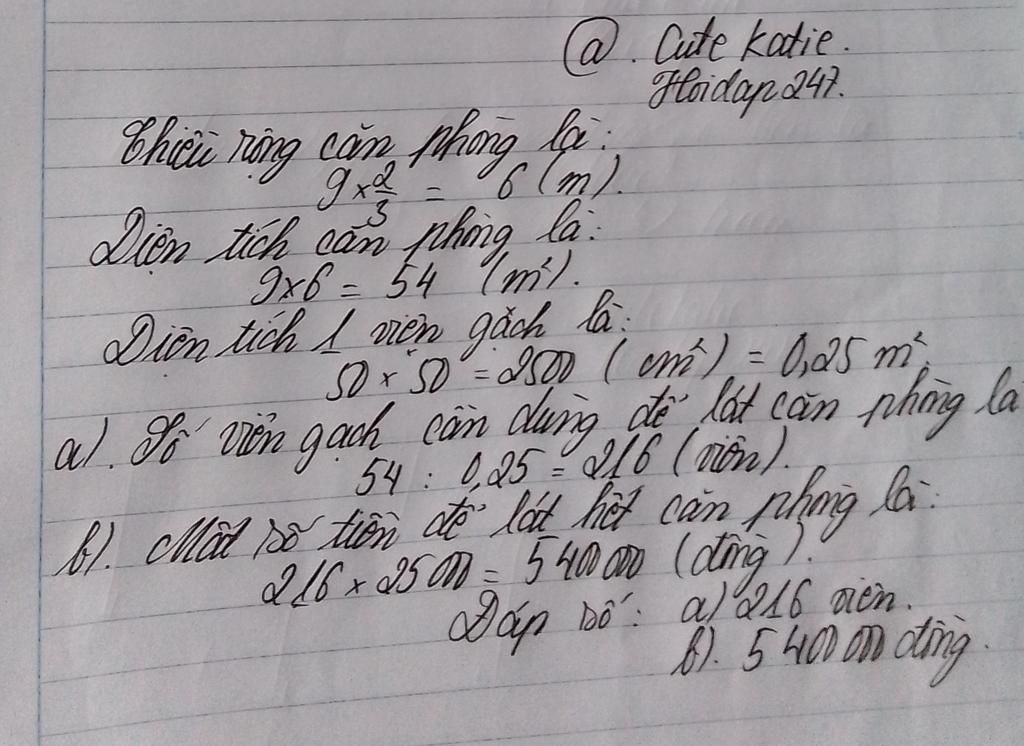 @. Cute Katie.
Hoidap247.
Chiều rộng căn phòng là:
9 × 2/3 = 6 (m).
Diện tích căn phòng là:
9×6 = 54 (m²).
Diện tích 1 viên gạch là:
50 × 50 = 2500 (cm²) = 0,25 m².
a). Số viên gạch cần dùng để lát căn phòng là
54 : 0,25 = 216 (viên).
b). Mất số tiền để lát hết căn phòng là:
216 × 25000 = 5400000 (đồng).
Đáp số: a) 216 viên.
b). 5 400 000 đồng.